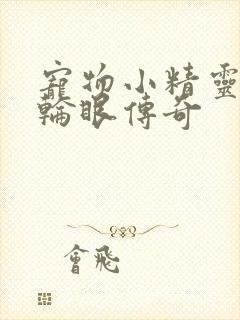 寵物小精靈
輪眼傳奇
會飛